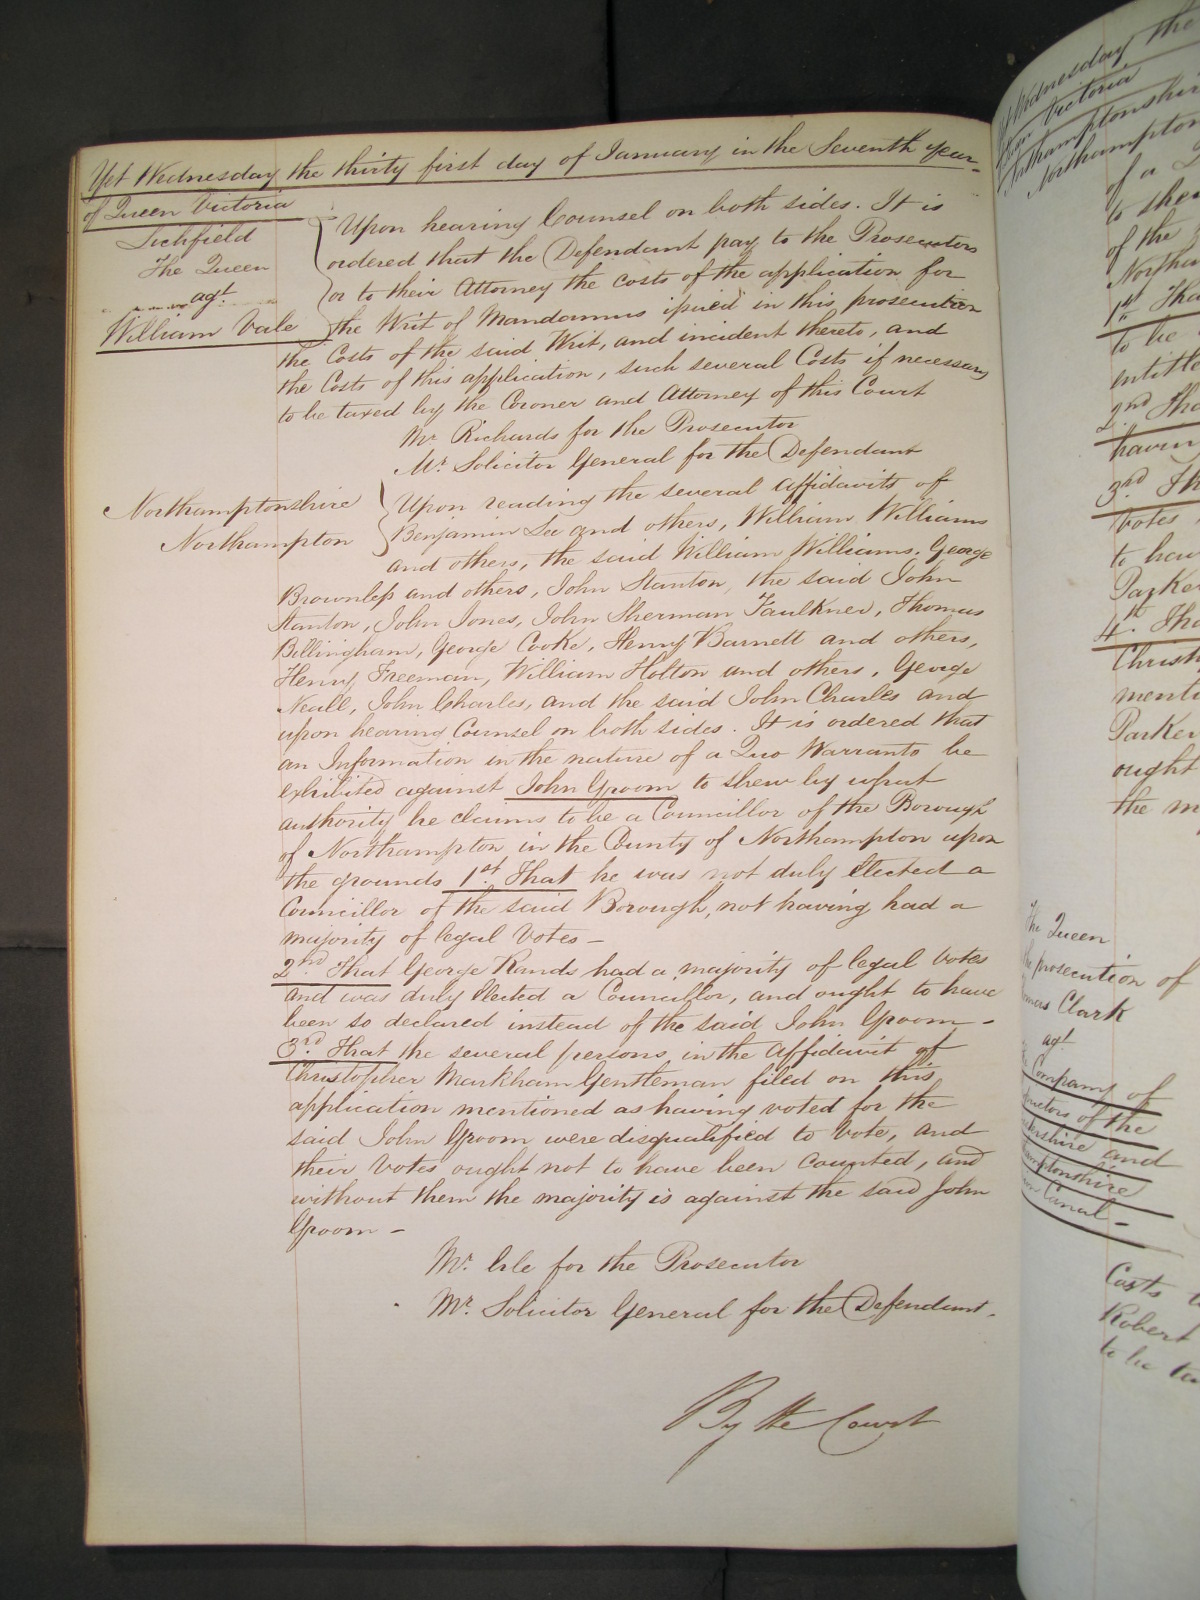 Yet Wednesday the thirty first day of January in the Seventh year
of Queen Victoria
Lichfield
The Queen
agt
William Vale
Upon hearing Counsel on both sides. It is
ordered that the Defendant pay to the Prosecutors
or to their Attorney the costs of the application for
the Writ of Mandamus issued in this prosecution
the Costs of the said Writ, and incident thereto, and
the Costs of this application, such several Costs if necessary
to be taxed by the Coroner and Attorney of this Court
Mr. Richards for the Prosecutor
Mr. Solicitor General for the Defendant
Northamptonshire
Northampton
Upon reading the several affidavits of
Benjamin Lee and others, William Williams
and others, the said William Williams, George
Brownless and others, John Stanton, the said John
Stanton, John Jones, John Sherman Faulkner, Thomas
Billingham, George Cooke, Henry Barnett and others,
Henry Freeman, William Holton and others, George
Neall, John Charles, and the said John Charles and
upon hearing Counsel on both sides. It is ordered that
an Information in the nature of a Quo Warranto be
exhibited against John Groom to shew by what
authority he claims to be a Councillor of the Borough
of Northampton in the County of Northampton upon
the grounds 1st. That he was not duly Elected a
Councillor of the said Borough, not having had a
majority of legal Votes -
2nd That George Rands had a majority of legal Votes
and was duly Elected a Councillor, and ought to have
been so declared instead of the said John Groom -
3rd. That the several persons in the Affidavit of
Christopher Markham Gentleman filed on this
application mentioned as having voted for the
said John Groom were disqualified to Vote, and
their Votes ought not to have been counted, and
without them the majority is against the said John
Groom -
Mr. for the Prosecutor
Mr. Solicitor General for the Defendant.
By the Court
Wednesday the
Victoria
Northamptonshire
Northampton
of a
to
of the
1st. Tha
to be
entitle
2nd Tha
having
3rd. Th
Votes
to have
Parker
4th. Tha
Christ
menti
Parker
ought
the m
The Queen
prosecution of
Clark
agt
Company of
of the
and
Canal -
Costs
Robert
to be ta